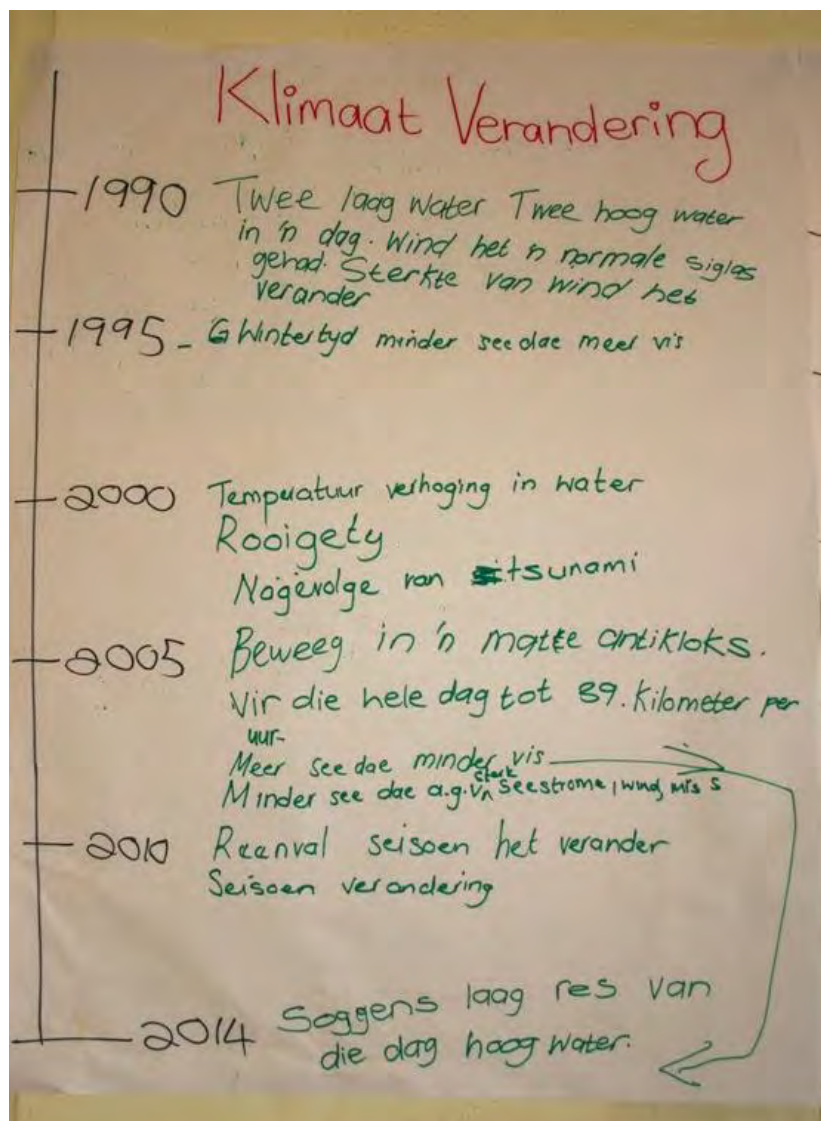 Klimaat Verandering
1990 Twee laag water Twee hoog water
in 'n dag. Wind het 'n normale siglas
gehad. Sterkte van wind het
verander
1995 - Wintertyd minder see dae meer vis
2000 Temperatuur verhoging in water
Rooigety
Nagevolge van tsunami
2005 Beweeg in 'n matte antikloks.
Vir die hele dag tot 39. Kilometer per
uur-
Meer see dae minder vis
Minder see dae a.g.v sterk seestrome, wind, mis s
2010 Reenval seisoen het verander
Seisoen verandering
2014 Soggens laag res van
die dag hoog water.